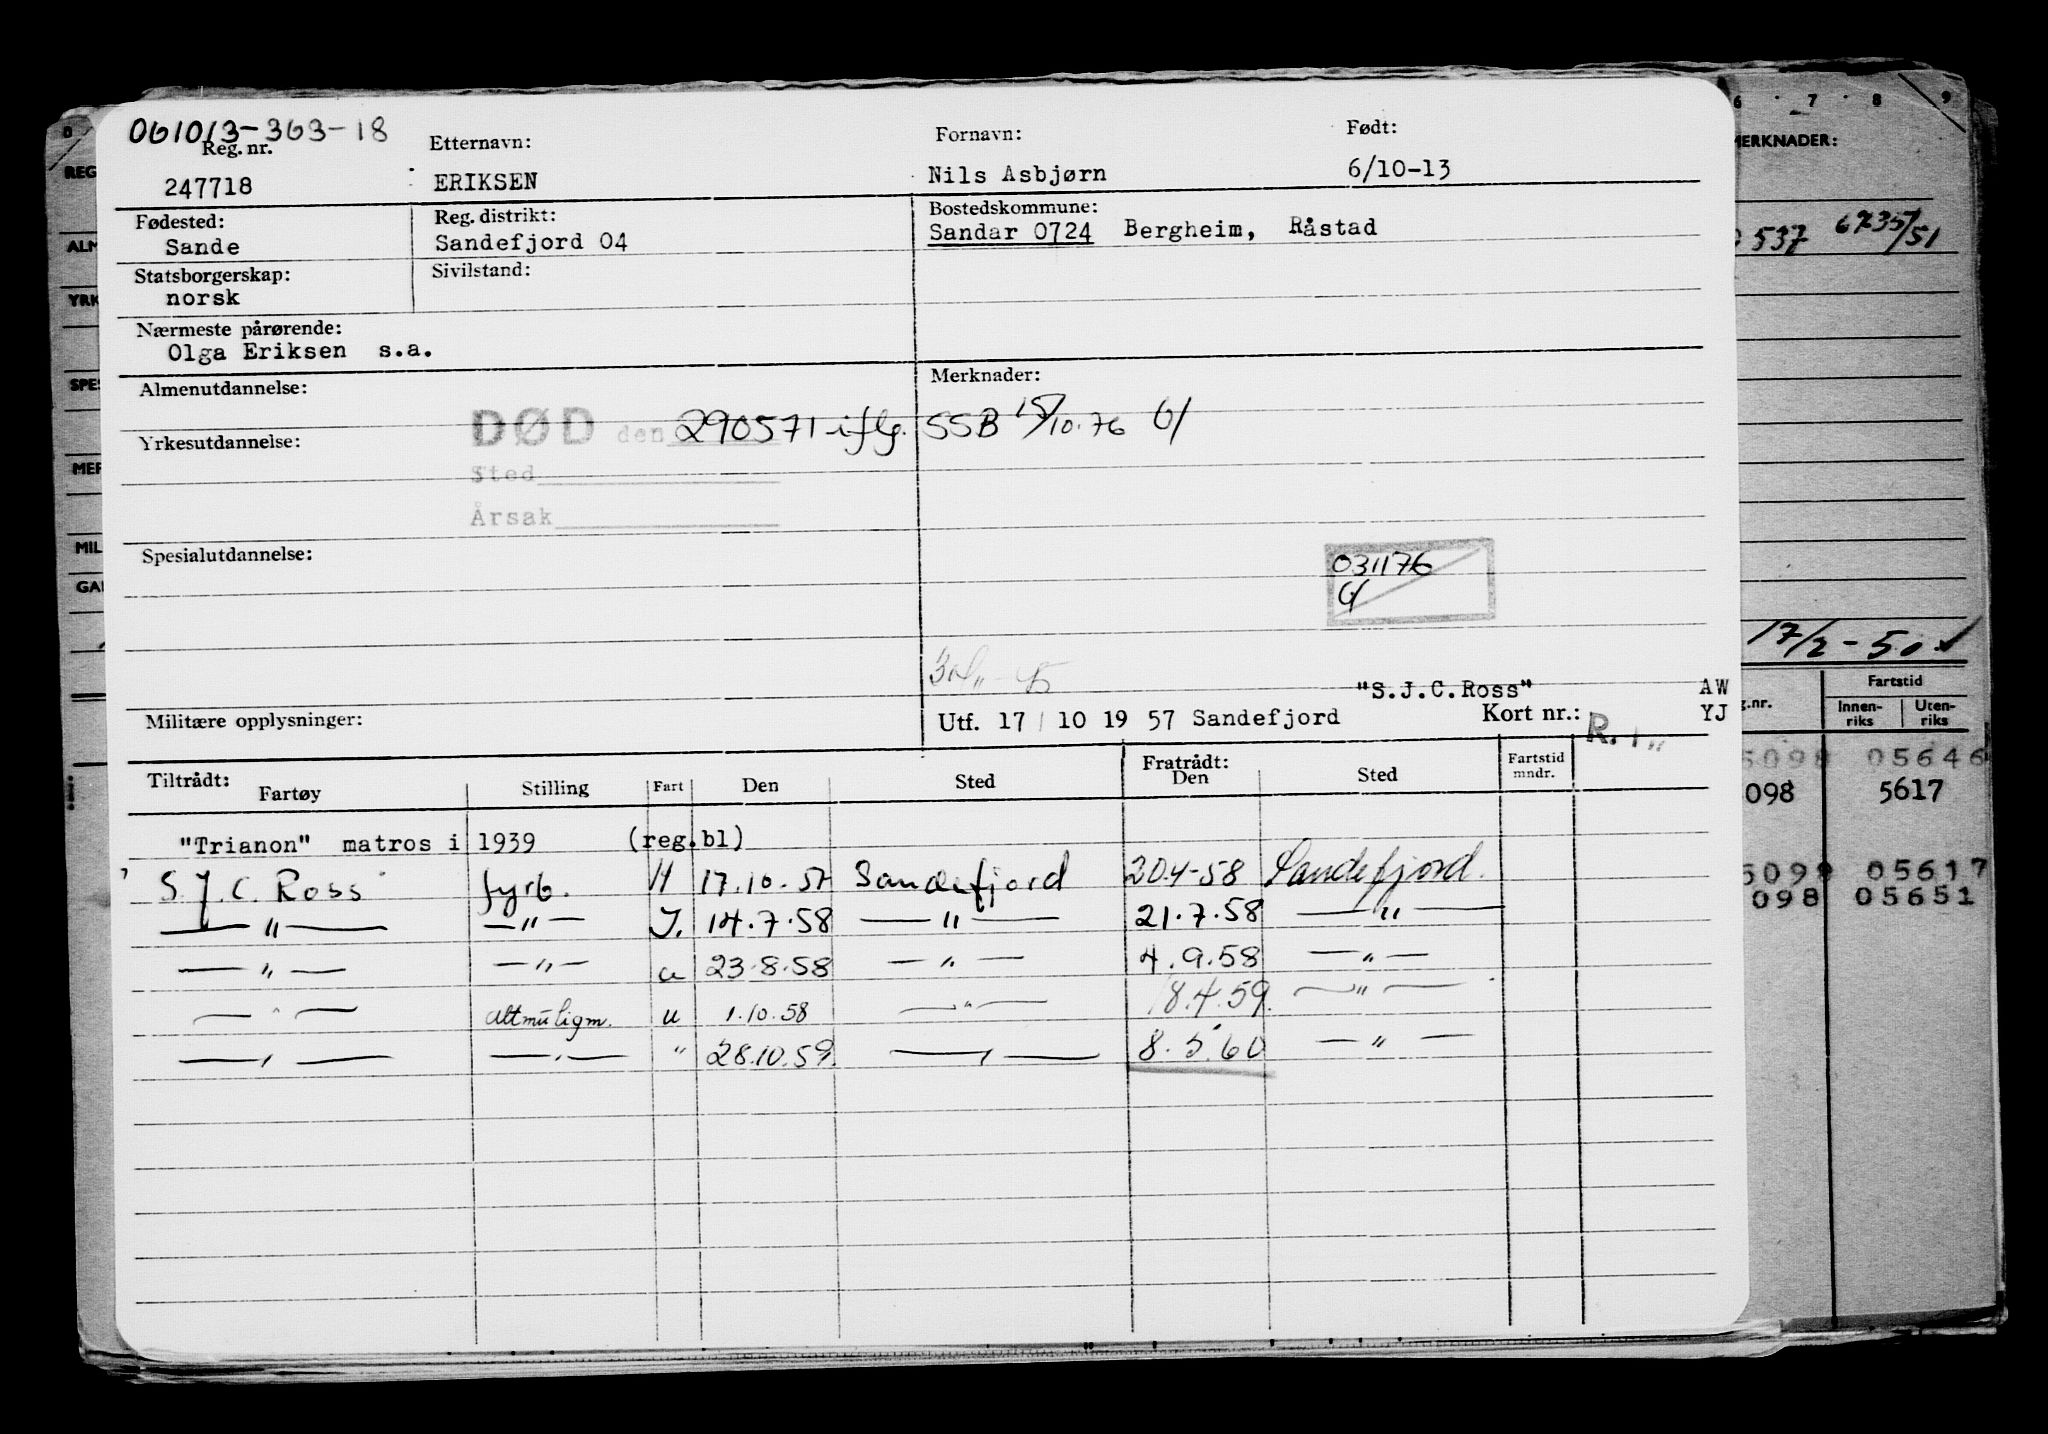 061013-363-18
Reg. nr. Etternavn: Fornavn: Født:
247718 ERIKSEN Nils Asbjørn 6/10-13
Fødested: Reg. distrikt: Bostedskommune:
Sande Sandefjord 04 Sandar 0724 Bergheim, Råstad
Statsborgerskap: Sivilstand:
norsk
Nærmeste pårørende:
Olga Eriksen s.a.
Almenutdannelse: Merknader:
DØD den 290571 iflg. SSB 15/10.76 G/
Yrkesutdannelse:
Sted
Årsak
Spesialutdannelse:
031176
G/
"S.J.C.Ross" AW
Militære opplysninger: Utf. 17/10 1957 Sandefjord Kort nr.: YJ
Tiltrådt: Fratrådt:
Fartøy Stilling Fart Den Sted Den Sted Fartstid mndr.
"Trianon" matros i 1939 (reg.bl)
S.J.C. Ross fyrb. H 17.10.57 Sandefjord 20.4-58 Sandefjord.
—"— —"— J. 14.7.58 —"— 21.7.58 —"—
—"— —"— u 23.8.58 —"— 4.9.58 —"—
—"— altmuligm. u 1.10.58 —"— 18.4.59. —"—
—"— —"— " 28.10.59. —"— 8.5.60 —"—
6 7 8 9
MERKNADER:
537 6735/51
17/2-50
g.nr. Fartstid
Innen-riks Uten-riks
5098 05646
098 5617
5098 05617
098 05651
0
REG
ALM
YRK
SPES
MER
MIL
GA